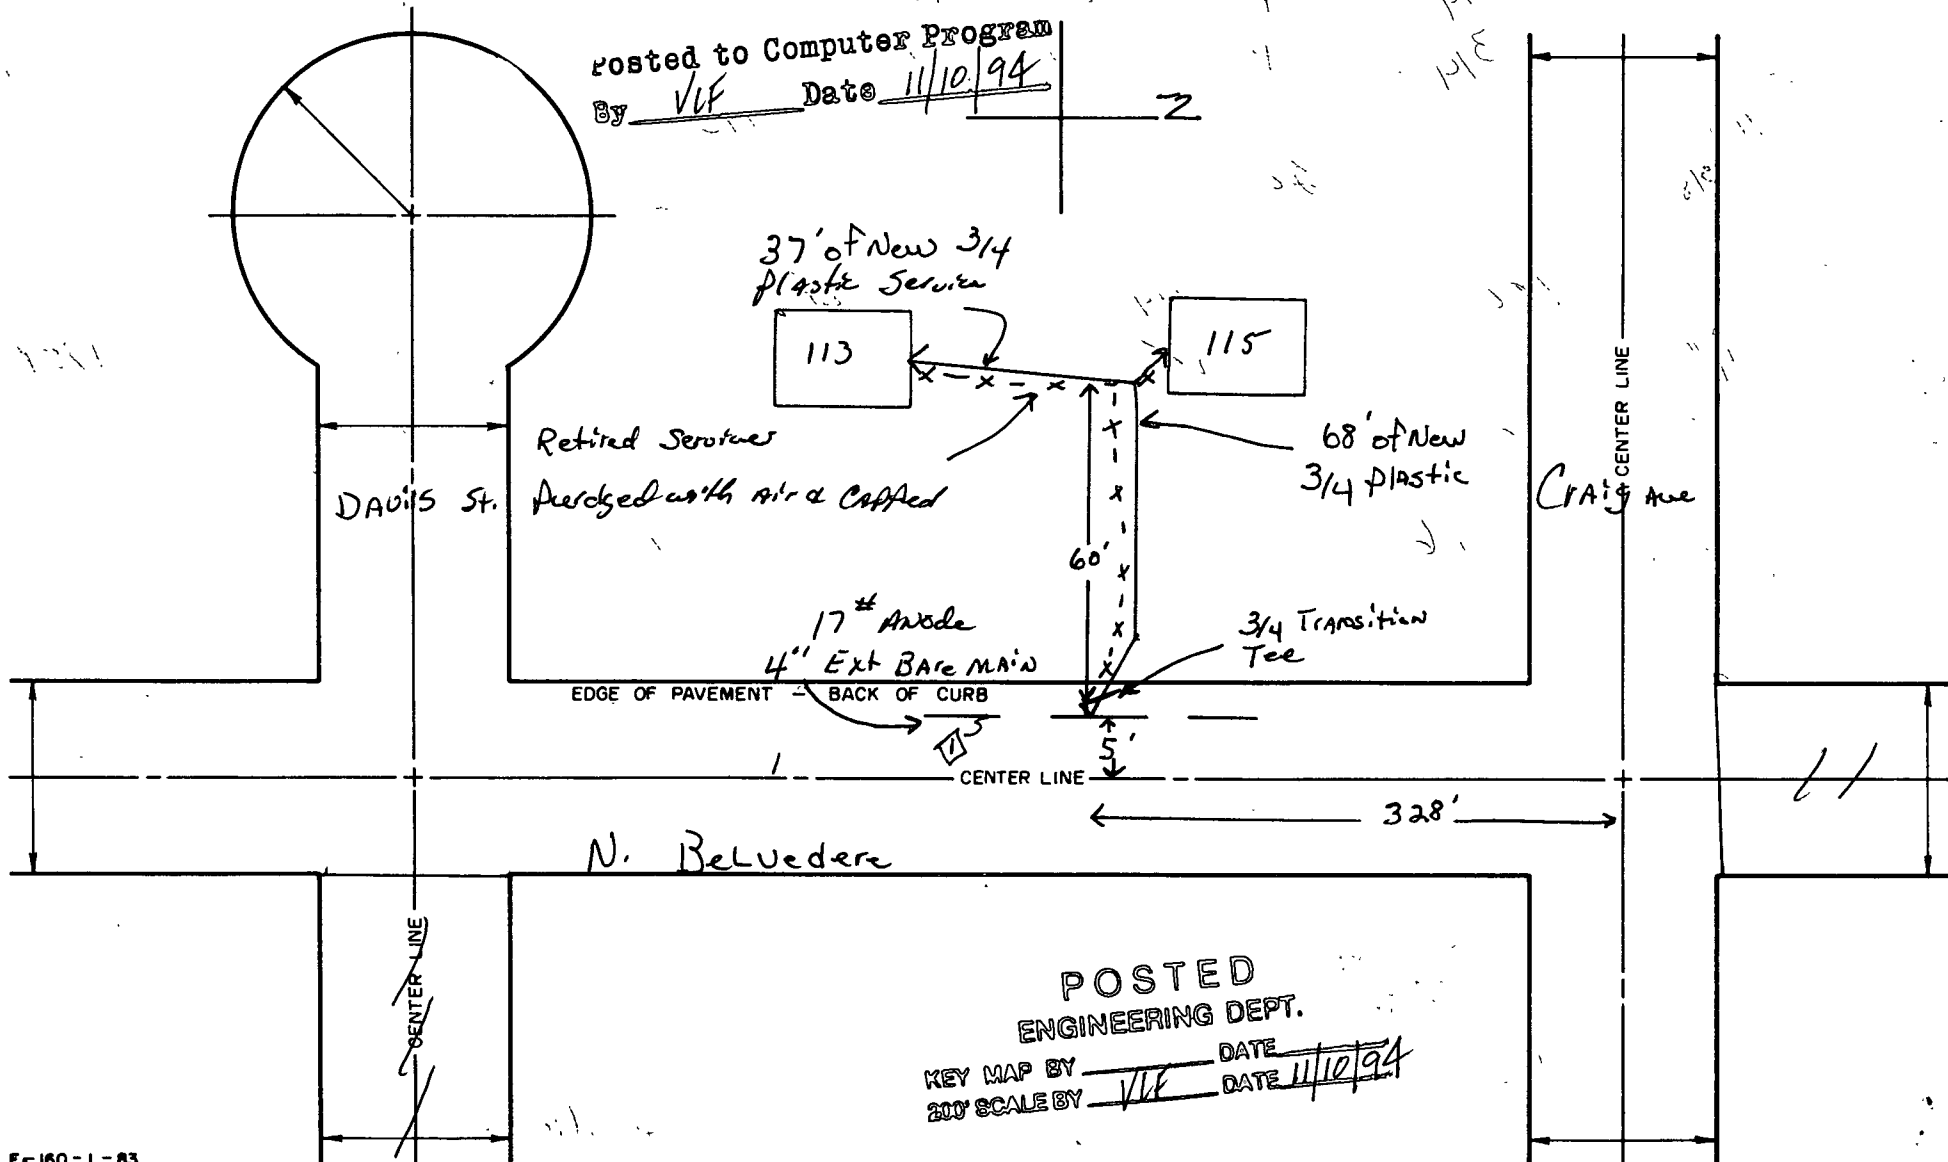 Posted to Computer Program
By VLF Date 11/10/94
N
37' of New 3/4
Plastic Service
113
115
Retired Services
Purdged with Air & Capped
68' of New
3/4 Plastic
DAVIS St.
Craig Ave
CENTER LINE
60'
17# Anode
4" Ext BAre MAIN
3/4 TRANSition
Tee
EDGE OF PAVEMENT - BACK OF CURB
1
5'
CENTER LINE
328'
N. BeLvedere
CENTER LINE
POSTED
ENGINEERING DEPT.
KEY MAP BY DATE
200' SCALE BY VLF DATE 11/10/94
F-160-1-83